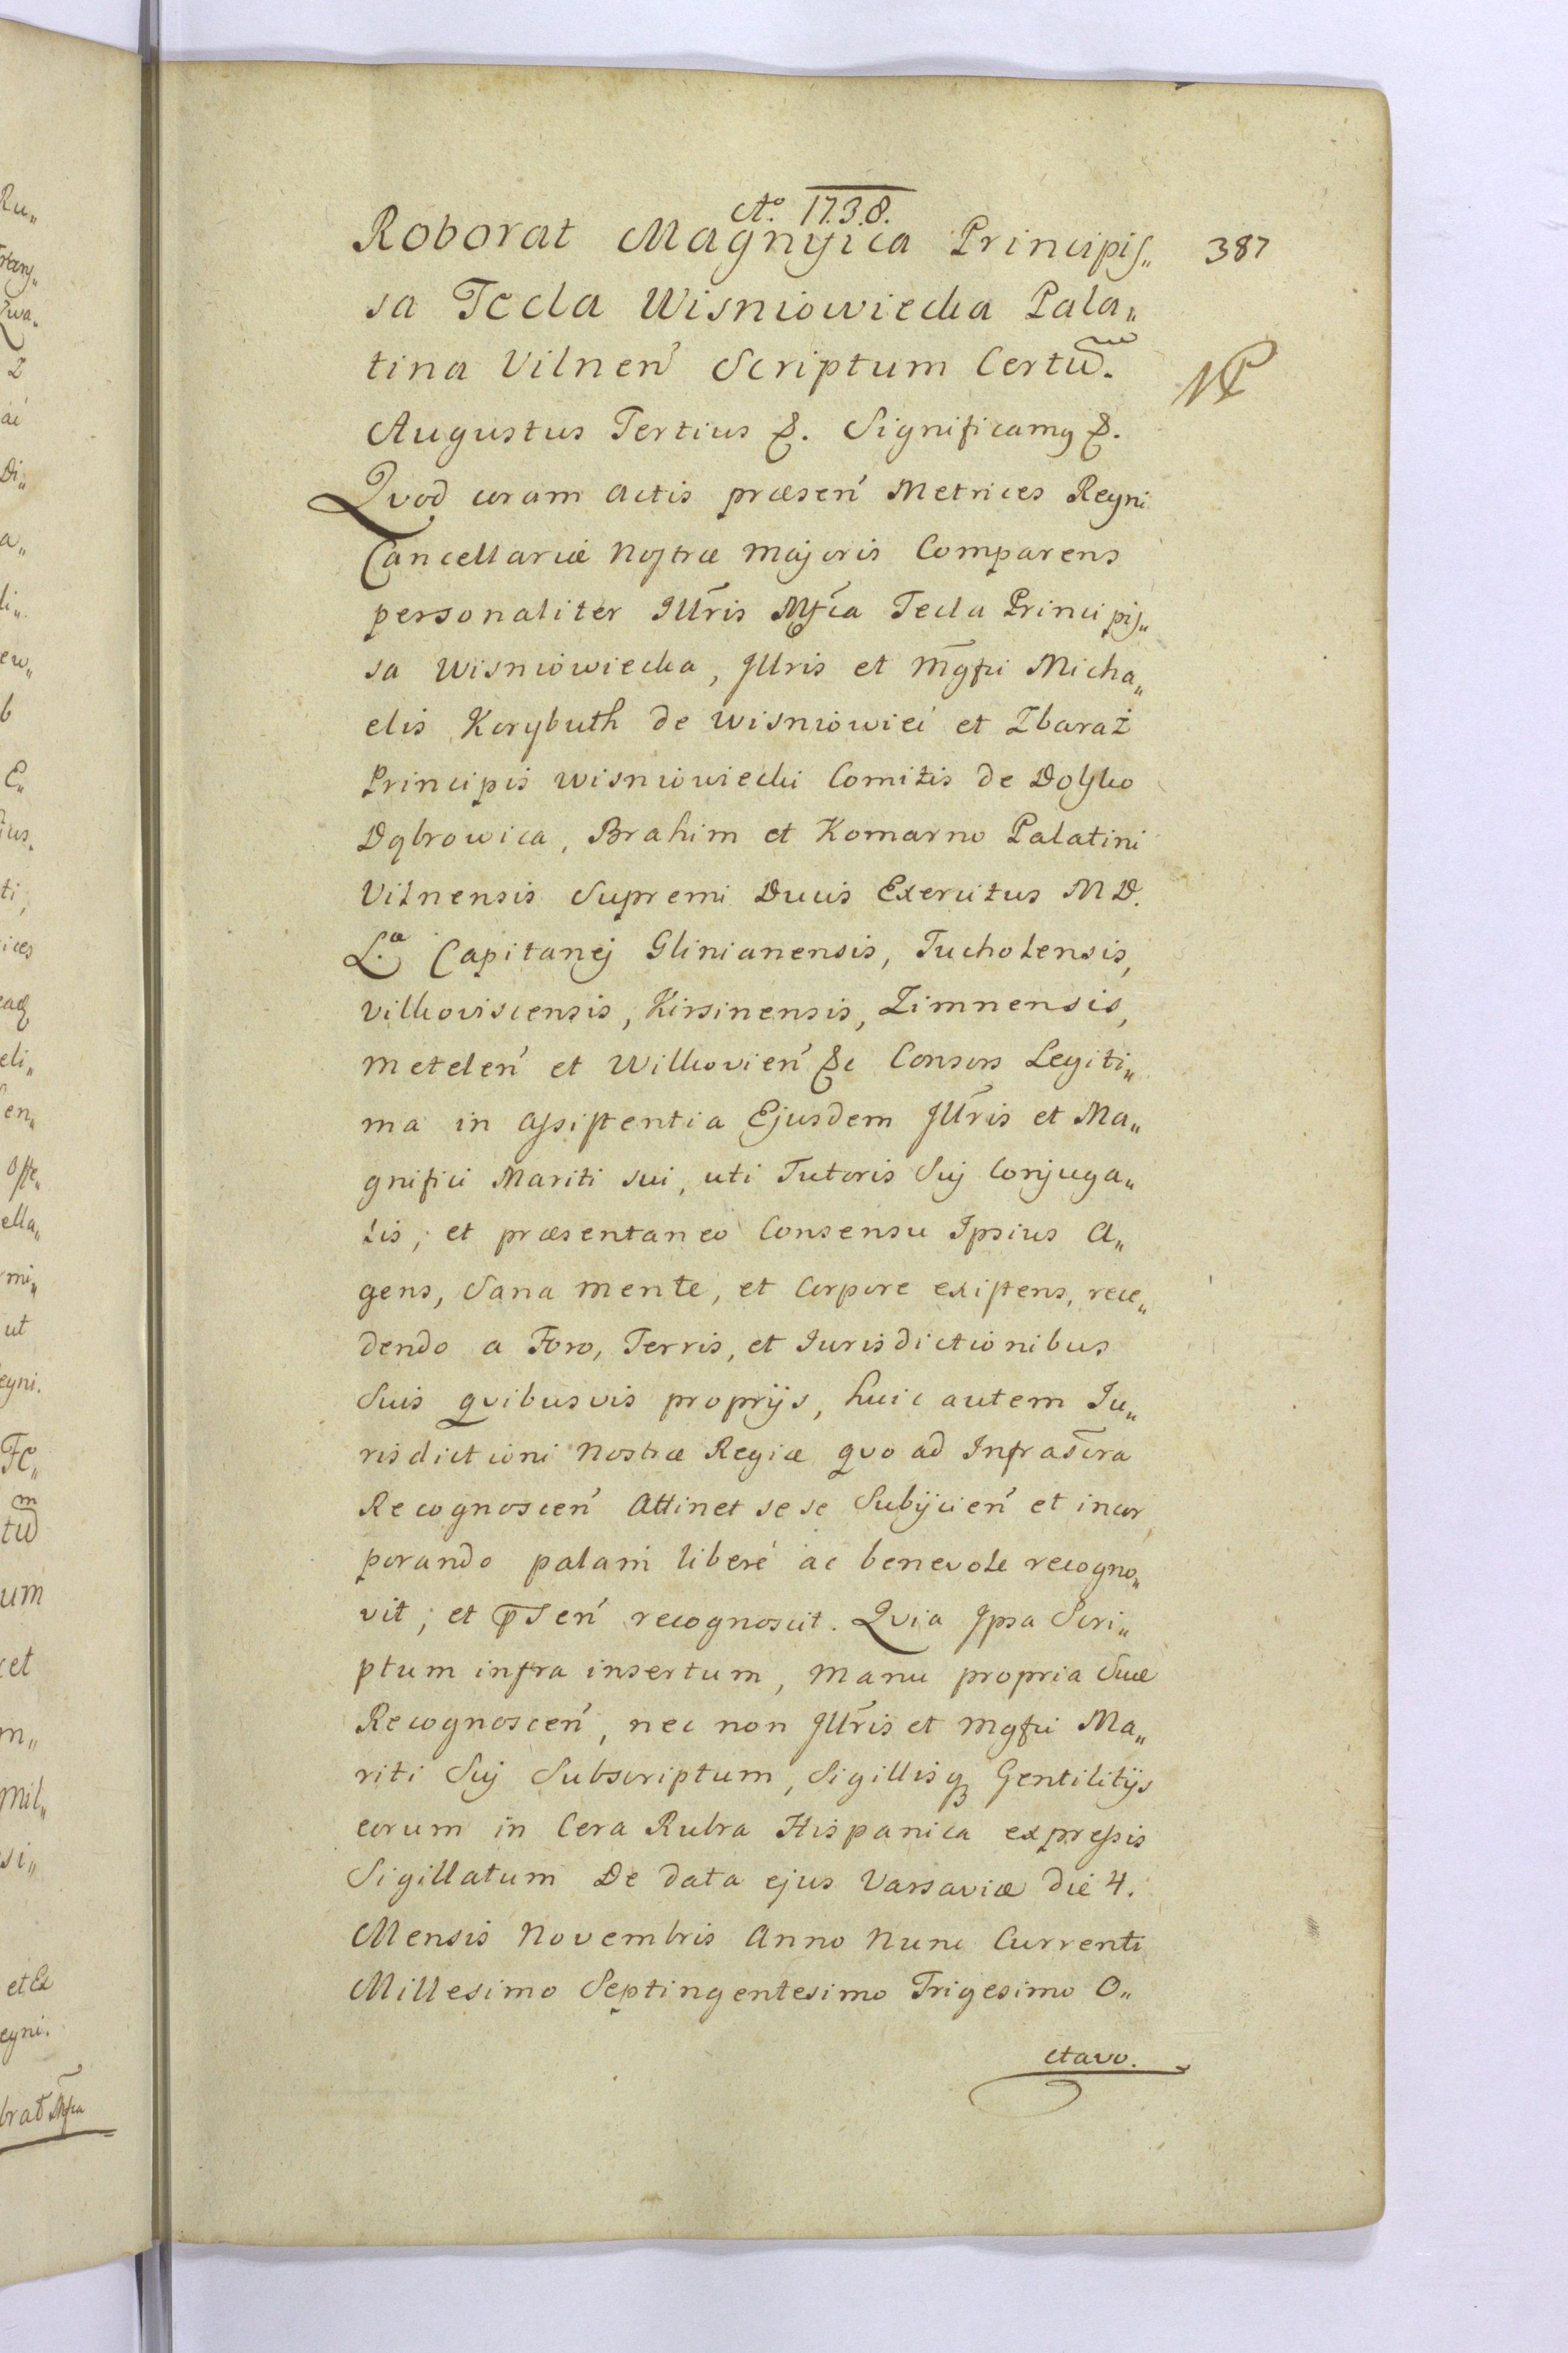 Ao. 1738.
387
Roborat Magnifica Principis„
sa Tecla Wisniowiecka Pala„
tina Vilnen̄ Scriptum Certũ.
Augustus Tertius &. Significamꝰ &.
Qvod coram Actis præsen̄ Metrices Regni
Cancellariæ Nostræ Majoris Comparens
personaliter Illr̄is Mf̄ca Tecla Principis„
sa Wisniowiecka, Illris et Mg̅fci Micha„
elis Korybuth de Wisniowiec et Zbaraż
Principis Wisniowiecki Comitis de Dolsko
Dąbrowica, Brahim et Komarno Palatini
Vilnensis Supremi Ducis Exercitus M D.
L.æ Capitanej Glinianensis, Tucholensis,
Vilkoviscensis, Kirsinensis, Zimnensis,
Metelen̄ et Wilkovien̄ &c Consors Legiti„
ma in Assistentia Ejusdem Illr̄is et Ma„
gnifici Mariti sui, uti Tutoris Sui Conjuga„
lis; et præsentaneo Consensu Ipsius A„
gens, Sana mente, et Corpore existens, rece„
dendo a Foro, Terris, et Jurisdictionibus
Suis qvibusvis proprijs, huic autem Ju„
risdictioni Nostræ Regiæ qvo ad Infrascr̄a
Recognoscen̄ Attinet se se Subijcien̄ et incor„
porando palam liberè ac benevole recogno„
vit; et p̅sen̄ recognoscit. Qvia Ipsa Scri„
ptum infra insertum, Manu propria Suæ
Recognoscen̄, nec non Illr̄is et Mgfci Ma„
riti Sui Subscriptum, Sigillisqꝫ Gentilitijs
eorum in Cera Rubra Hispanica expressis
Sigillatum De data ejus Varsaviæ die 4.
Mensis Novembris Anno Nunc Currenti
Millesimo Septingentesimo Trigesimo O„
ctavo.